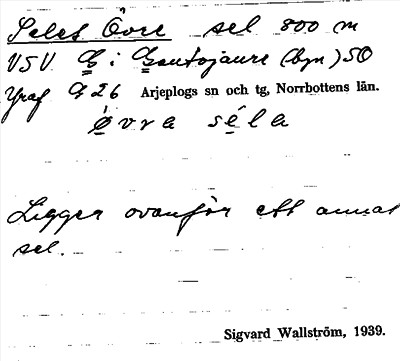 Selet Övre sel 800 m
VSV G i Gautojaure (byn) SO
Graf G 26 Arjeplogs sn och tg, Norrbottens län.
övra séla
Ligger ovanför ett annat
sel.
Sigvard Wallström, 1939.